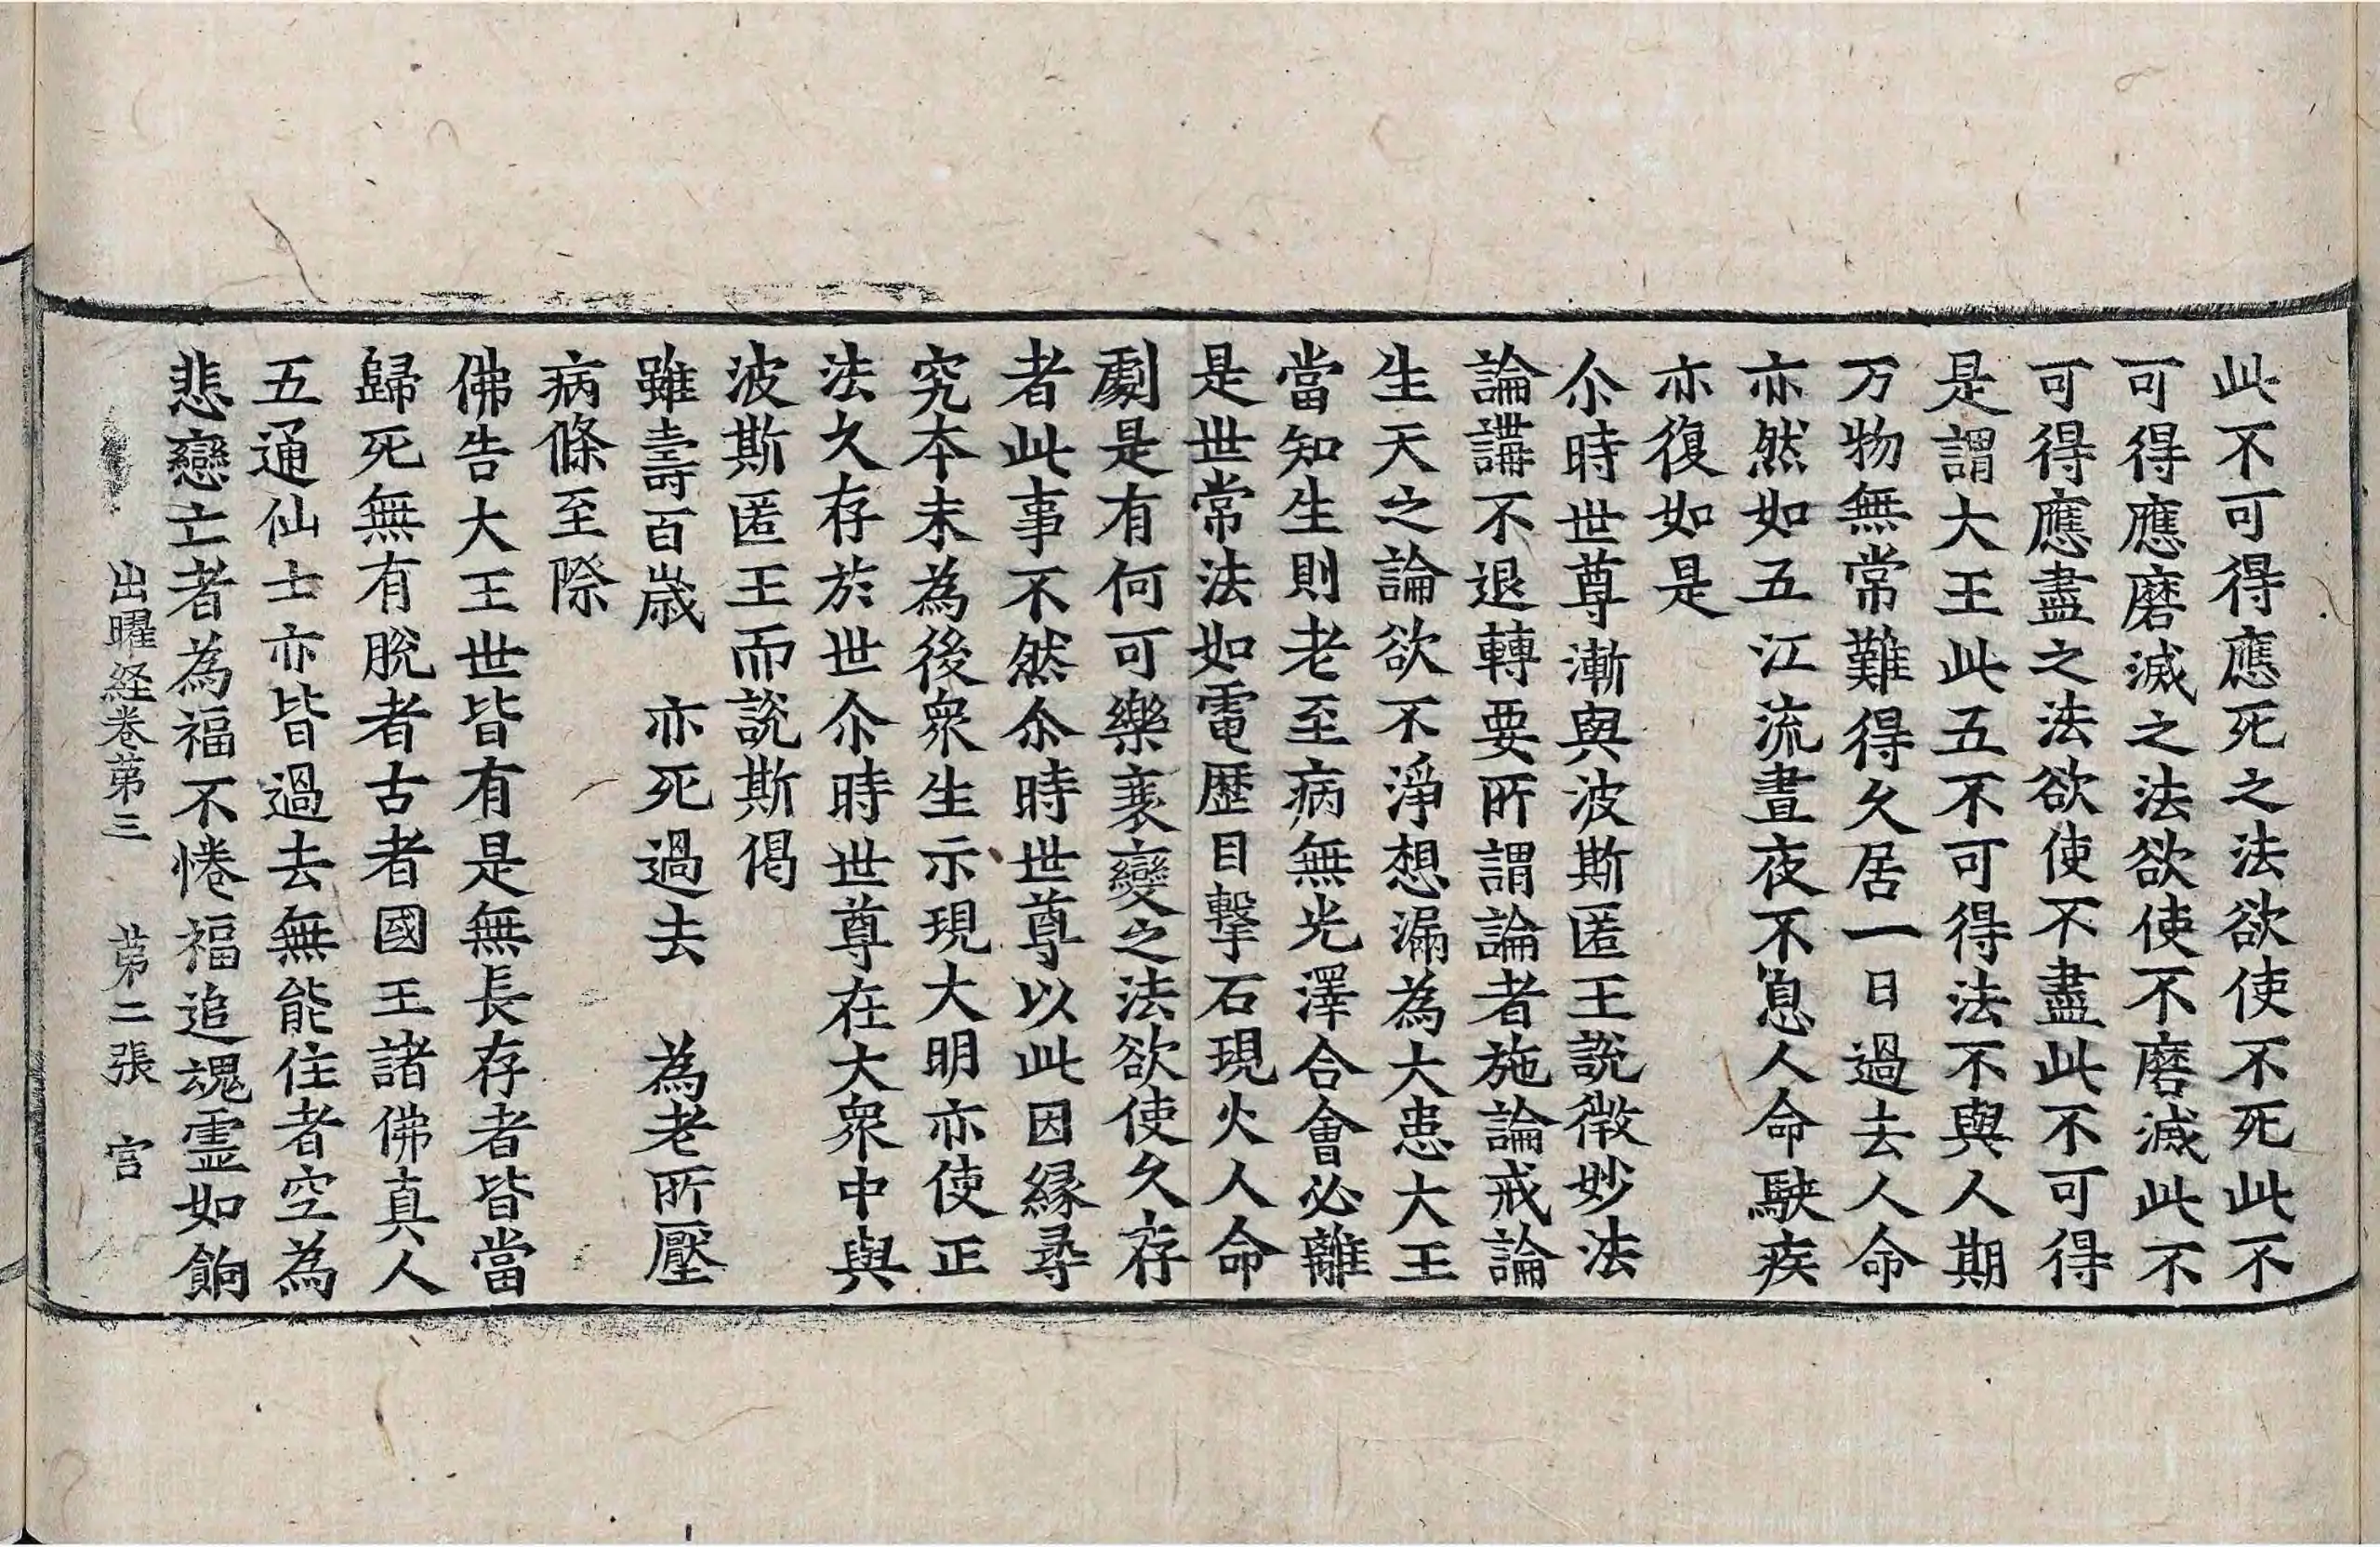 此不可得應死之法欲使不死此不
可得應磨滅之法欲使不磨滅此不
可得應盡之法欲使不盡此不可得
是謂大王此五不可得法不與人期
万物無常難得久居一日過去人命
亦然如五江流晝夜不息人命駛疾
亦復如是
尒時世尊漸與波斯匿王說微妙法
論講不退轉要所謂論者施論戒論
生天之論欲不淨想漏為大患大王
當知生則老至病無光澤合會必離
是世常法如電歷目擊石現火人命
劇是有何可樂衰變之法欲使久存
者此事不然尒時世尊以此因縁尋
究本末為後衆生示現大明亦使正
法久存於世尒時世尊在大衆中與
波斯匿王而說斯偈
雖壽百歲　亦死過去　為老所壓
病條至際
佛告大王世皆有是無長存者皆當
歸死無有脫者古者國王諸佛真人
五通仙士亦皆過去無能住者空為
悲戀亡者為福不惓福追魂靈如餉
出曜経卷第三　第二張　官